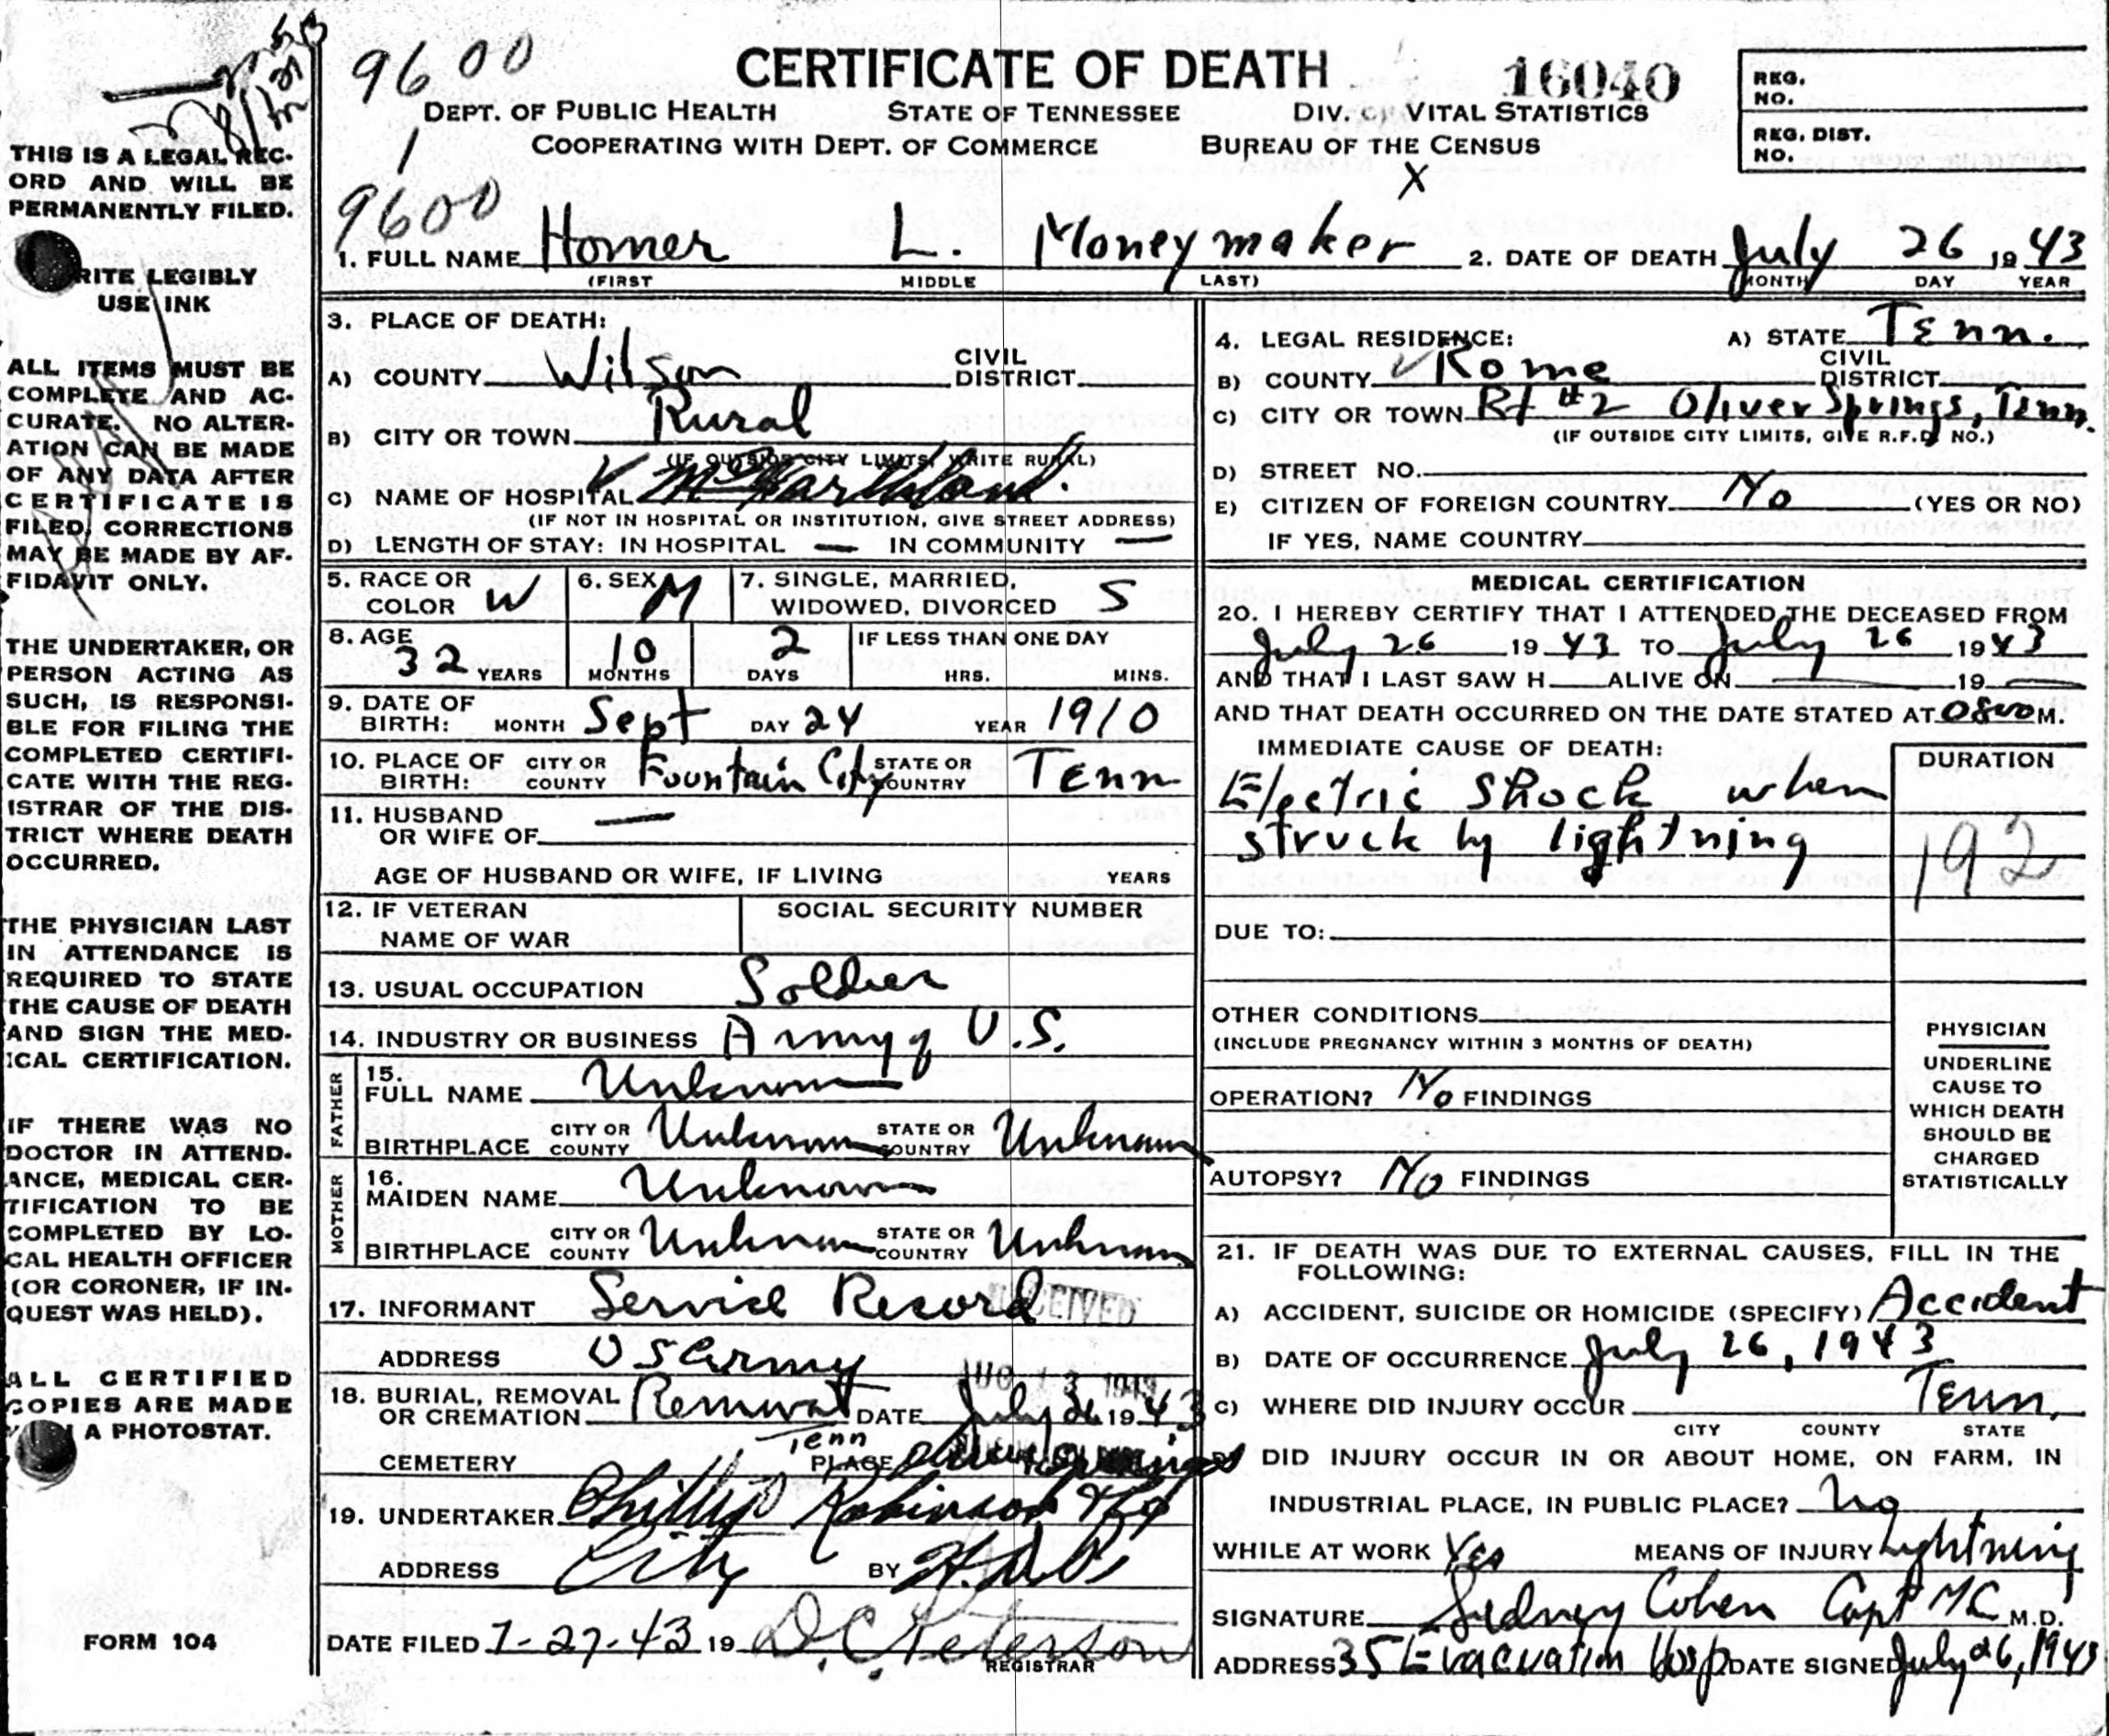 9600
CERTIFICATE OF DEATH
16040
REG. NO.
DEPT. OF PUBLIC HEALTH STATE OF TENNESSEE DIV. OF VITAL STATISTICS
COOPERATING WITH DEPT. OF COMMERCE BUREAU OF THE CENSUS
REG. DIST. NO.
1
X
9600
1. FULL NAME Homer L. Moneymaker 2. DATE OF DEATH July 26 1943
(FIRST MIDDLE LAST) MONTH DAY YEAR
THIS IS A LEGAL REC-
ORD AND WILL BE
PERMANENTLY FILED.
RITE LEGIBLY
USE INK
ALL ITEMS MUST BE
COMPLETE AND AC-
CURATE. NO ALTER-
ATION CAN BE MADE
OF ANY DATA AFTER
CERTIFICATE IS
FILED. CORRECTIONS
MAY BE MADE BY AF-
FIDAVIT ONLY.
THE UNDERTAKER, OR
PERSON ACTING AS
SUCH, IS RESPONSI-
BLE FOR FILING THE
COMPLETED CERTIFI-
CATE WITH THE REG-
ISTRAR OF THE DIS-
TRICT WHERE DEATH
OCCURRED.
THE PHYSICIAN LAST
IN ATTENDANCE IS
REQUIRED TO STATE
THE CAUSE OF DEATH
AND SIGN THE MED-
ICAL CERTIFICATION.
IF THERE WAS NO
DOCTOR IN ATTEND-
ANCE, MEDICAL CER-
TIFICATION TO BE
COMPLETED BY LO-
CAL HEALTH OFFICER
(OR CORONER, IF IN-
QUEST WAS HELD).
ALL CERTIFIED
COPIES ARE MADE
A PHOTOSTAT.
FORM 104
3. PLACE OF DEATH:
A) COUNTY Wilson CIVIL DISTRICT
B) CITY OR TOWN Rural
(IF OUTSIDE CITY LIMITS, WRITE RURAL)
C) NAME OF HOSPITAL
(IF NOT IN HOSPITAL OR INSTITUTION, GIVE STREET ADDRESS)
D) LENGTH OF STAY: IN HOSPITAL — IN COMMUNITY —
5. RACE OR COLOR W 6. SEX M 7. SINGLE, MARRIED, WIDOWED, DIVORCED S
8. AGE 32 YEARS 10 MONTHS 2 DAYS IF LESS THAN ONE DAY HRS. MINS.
9. DATE OF BIRTH: MONTH Sept DAY 24 YEAR 1910
10. PLACE OF BIRTH: CITY OR COUNTY Fountain City STATE OR COUNTRY Tenn
11. HUSBAND OR WIFE OF —
AGE OF HUSBAND OR WIFE, IF LIVING YEARS
12. IF VETERAN NAME OF WAR SOCIAL SECURITY NUMBER
13. USUAL OCCUPATION Soldier
14. INDUSTRY OR BUSINESS Army of U.S.
FATHER
15. FULL NAME Unknown
BIRTHPLACE CITY OR COUNTY Unknown STATE OR COUNTRY Unknown
MOTHER
16. MAIDEN NAME Unknown
BIRTHPLACE CITY OR COUNTY Unknown STATE OR COUNTRY Unknown
17. INFORMANT Service Record
RECEIVED
ADDRESS US Army
AUG 13 1943
18. BURIAL, REMOVAL OR CREMATION Removal DATE July 26 1943
CEMETERY PLACE Oliver Springs Tenn
19. UNDERTAKER Phillips Robinson
ADDRESS City BY
DATE FILED 7-27-43 19 D. C. Peterson
REGISTRAR
4. LEGAL RESIDENCE: A) STATE Tenn.
B) COUNTY Rome CIVIL DISTRICT
C) CITY OR TOWN Rt #2 Oliver Springs, Tenn.
(IF OUTSIDE CITY LIMITS, GIVE R.F.D. NO.)
D) STREET NO.
E) CITIZEN OF FOREIGN COUNTRY No (YES OR NO)
IF YES, NAME COUNTRY
MEDICAL CERTIFICATION
20. I HEREBY CERTIFY THAT I ATTENDED THE DECEASED FROM
July 26 1943 TO July 26 1943
AND THAT I LAST SAW H ALIVE ON — 19 —
AND THAT DEATH OCCURRED ON THE DATE STATED AT 0800 M.
IMMEDIATE CAUSE OF DEATH: DURATION
Electric Shock when
struck by lightning
192
DUE TO:
OTHER CONDITIONS
(INCLUDE PREGNANCY WITHIN 3 MONTHS OF DEATH)
OPERATION? No FINDINGS
AUTOPSY? No FINDINGS
PHYSICIAN
UNDERLINE
CAUSE TO
WHICH DEATH
SHOULD BE
CHARGED
STATISTICALLY
21. IF DEATH WAS DUE TO EXTERNAL CAUSES, FILL IN THE
FOLLOWING:
A) ACCIDENT, SUICIDE OR HOMICIDE (SPECIFY) Accident
B) DATE OF OCCURRENCE July 26, 1943
C) WHERE DID INJURY OCCUR Tenn.
CITY COUNTY STATE
DID INJURY OCCUR IN OR ABOUT HOME, ON FARM, IN
INDUSTRIAL PLACE, IN PUBLIC PLACE? No
WHILE AT WORK Yes MEANS OF INJURY Lightning
SIGNATURE Sidney Cohen Capt MC M.D.
ADDRESS 35 Evacuation Hosp DATE SIGNED July 26, 1943